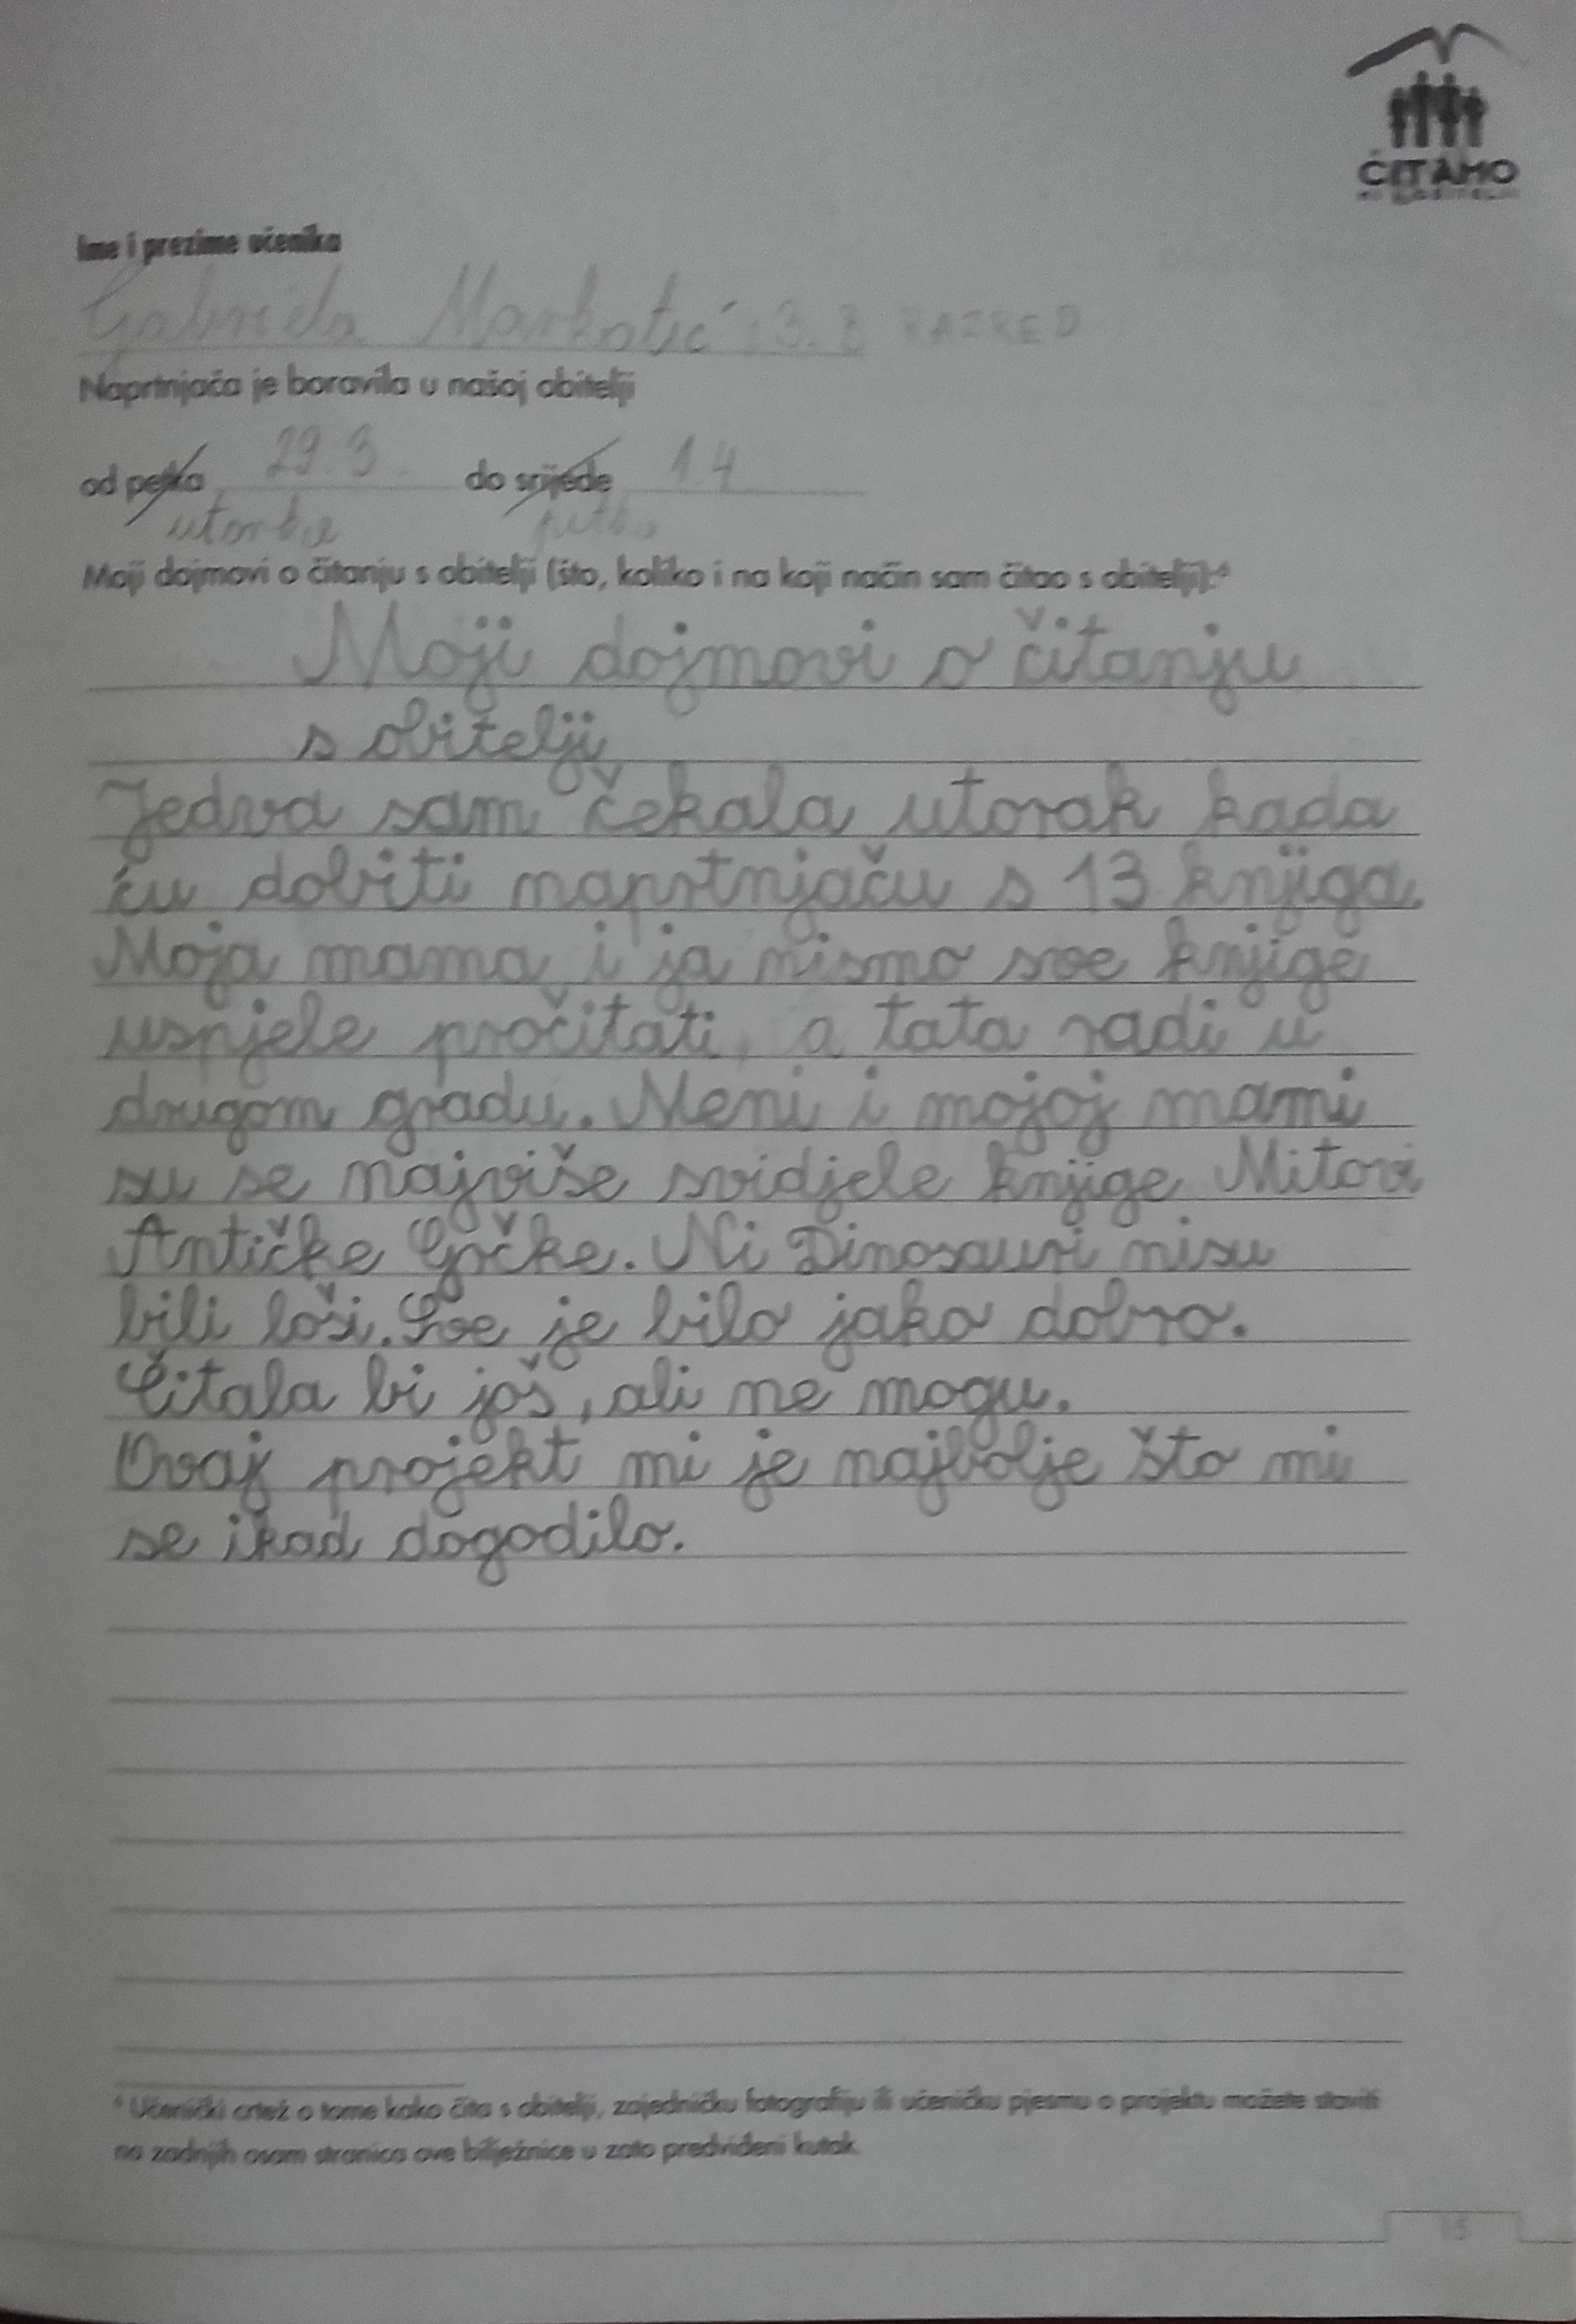 ČITAMO
Ime i prezime učenika
Gabriela Markotić, 3. B RAZRED
Naprtnjača je boravila u našoj obitelji
od petka 29.3. do srijede 1.4
utorka petka
Moji dojmovi o čitanju s obitelji (što, koliko i na koji način sam čitao s obitelji):*
Moji dojmovi o čitanju
s obitelji
Jedva sam čekala utorak kada
ću dobiti naprtnjaču s 13 knjiga.
Moja mama i ja nismo sve knjige
uspjele pročitati, a tata radi u
drugom gradu. Meni i mojoj mami
su se najviše svidjele knjige Mitovi
Antičke Grčke. Ni Dinosauri nisu
bili loši. Sve je bilo jako dobro.
Čitala bi još, ali ne mogu.
Ovaj projekt mi je najbolje što mi
se ikad dogodilo.
* Učenički crtež o tome kako čita s obitelji, zajedničku fotografiju ili učeničku pjesmu o projektu možete staviti
na zadnjih osam stranica ove bilježnice u zato predviđeni kutak.
15